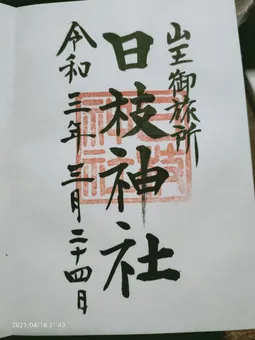 山王御旅所
日枝神社
令和三年三月二十四日
2021/04/16 21:43